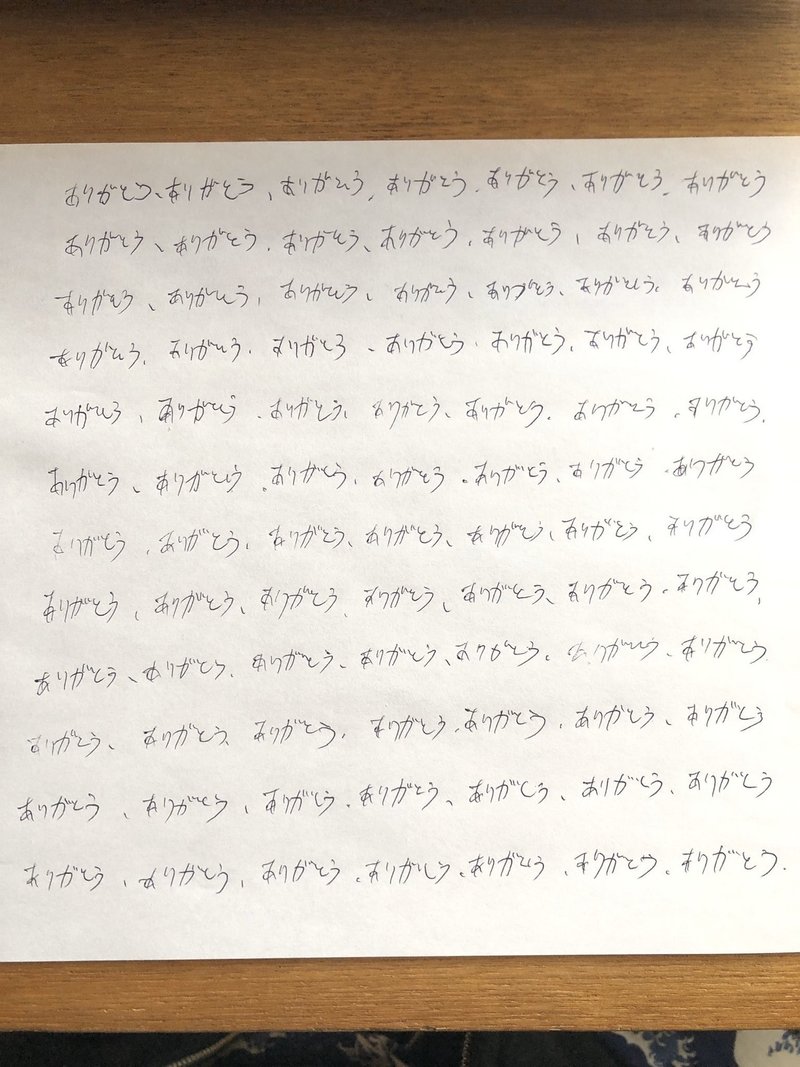 ありがとう、ありがとう、ありがとう、ありがとう、ありがとう、ありがとう、ありがとう
ありがとう、ありがとう、ありがとう、ありがとう、ありがとう、ありがとう、ありがとう
ありがとう、ありがとう、ありがとう、ありがとう、ありがとう、ありがとう、ありがとう
ありがとう、ありがとう、ありがとう、ありがとう、ありがとう、ありがとう、ありがとう
ありがとう、ありがとう、ありがとう、ありがとう、ありがとう、ありがとう、ありがとう、
ありがとう、ありがとう、ありがとう、ありがとう、ありがとう、ありがとう、ありがとう
ありがとう、ありがとう、ありがとう、ありがとう、ありがとう、ありがとう、ありがとう
ありがとう、ありがとう、ありがとう、ありがとう、ありがとう、ありがとう、ありがとう、
ありがとう、ありがとう、ありがとう、ありがとう、ありがとう、ありがとう、ありがとう
ありがとう、ありがとう、ありがとう、ありがとう、ありがとう、ありがとう、ありがとう
ありがとう、ありがとう、ありがとう、ありがとう、ありがとう、ありがとう、ありがとう
ありがとう、ありがとう、ありがとう、ありがとう、ありがとう、ありがとう、ありがとう.